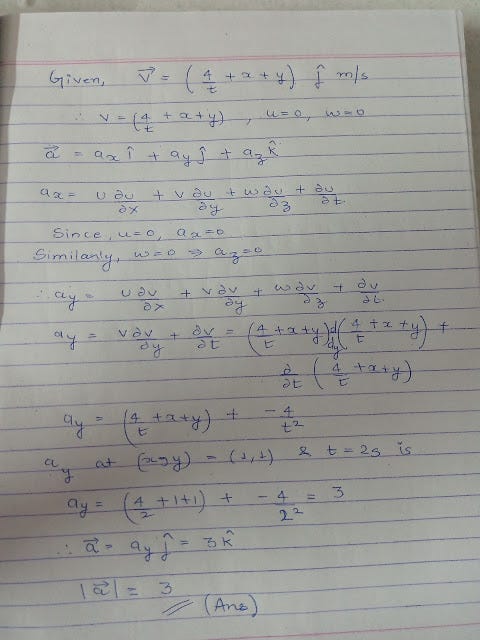 Given, V⃗ = (4/t + x + y) ĵ m/s
∴ v = (4/t + x + y), u=0, w=0
a⃗ = axî + ayĵ + azk̂
ax = u ∂u/∂x + v ∂u/∂y + w ∂u/∂z + ∂u/∂t
Since, u=0, ax=0
Similarly, w=0 ⇒ az=0
∴ ay = u ∂v/∂x + v ∂v/∂y + w ∂v/∂z + ∂v/∂t
ay = v ∂v/∂y + ∂v/∂t = (4/t + x + y) d/dy (4/t + x + y) +
∂/∂t (4/t + x + y)
ay = (4/t + x + y) + -4/t²
ay at (x,y) = (1,1) & t = 2s is
ay = (4/2 + 1 + 1) + -4/2² = 3
∴ a⃗ = ayĵ = 3k̂
|a⃗| = 3
(Ans)